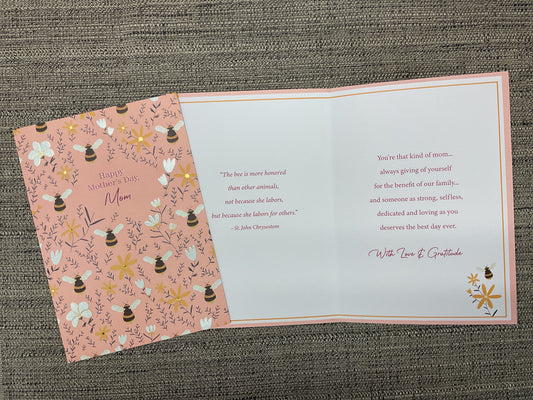 Happy
Mother's Day,
Mom
"The bee is more honored
than other animals,
not because she labors,
but because she labors for others."
– St. John Chrysostom
You're that kind of mom...
always giving of yourself
for the benefit of our family...
and someone as strong, selfless,
dedicated and loving as you
deserves the best day ever.
With Love & Gratitude